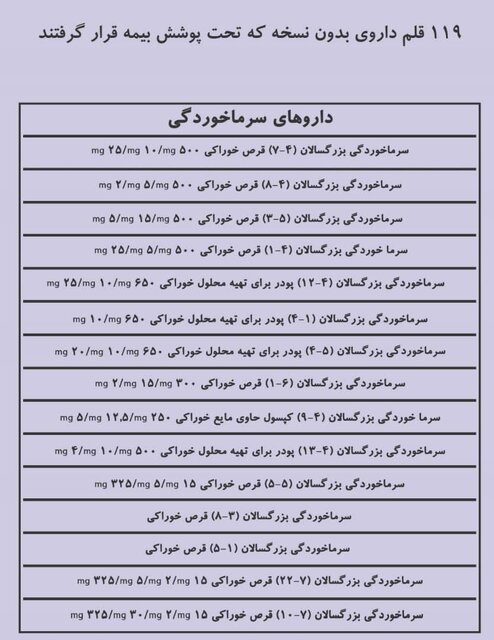 ۱۱۹ قلم داروی بدون نسخه که تحت پوشش بیمه قرار گرفتند
داروهای سرماخوردگی
سرماخوردگی بزرگسالان (۴-۷) قرص خوراکی ۵۰۰ mg/۱۰ mg/۲۵ mg
سرماخوردگی بزرگسالان (۴-۸) قرص خوراکی ۵۰۰ mg/۵ mg/۲ mg
سرماخوردگی بزرگسالان (۵-۳) قرص خوراکی ۵۰۰ mg/۱۵ mg/۵ mg
سرما خوردگی بزرگسالان (۴-۱) قرص خوراکی ۵۰۰ mg/۵ mg/۲۵ mg
سرماخوردگی بزرگسالان (۴-۱۲) پودر برای تهیه محلول خوراکی ۶۵۰ mg/۱۰ mg/۲۵ mg
سرماخوردگی بزرگسالان (۱-۴) پودر برای تهیه محلول خوراکی ۶۵۰ mg/۱۰ mg
سرماخوردگی بزرگسالان (۴-۵) پودر برای تهیه محلول خوراکی ۶۵۰ mg/۱۰ mg/۲۰ mg
سرماخوردگی بزرگسالان (۶-۱) قرص خوراکی ۳۰۰ mg/۱۵ mg/۲ mg
سرما خوردگی بزرگسالان (۴-۹) کپسول حاوی مایع خوراکی ۲۵۰ mg/۱۲,۵ mg/۵ mg
سرماخوردگی بزرگسالان (۴-۱۳) پودر برای تهیه محلول خوراکی ۵۰۰ mg/۱۰ mg/۴ mg
سرماخوردگی بزرگسالان (۵-۵) قرص خوراکی ۱۵ mg/۵ mg/۳۲۵ mg
سرماخوردگی بزرگسالان (۳-۸) قرص خوراکی
سرماخوردگی بزرگسالان (۱-۵) قرص خوراکی
سرماخوردگی بزرگسالان (۷-۲۲) قرص خوراکی ۱۵ mg/۲ mg/۵ mg/۳۲۵ mg
سرماخوردگی بزرگسالان (۷-۱۰) قرص خوراکی ۱۵ mg/۲ mg/۳۰ mg/۳۲۵ mg